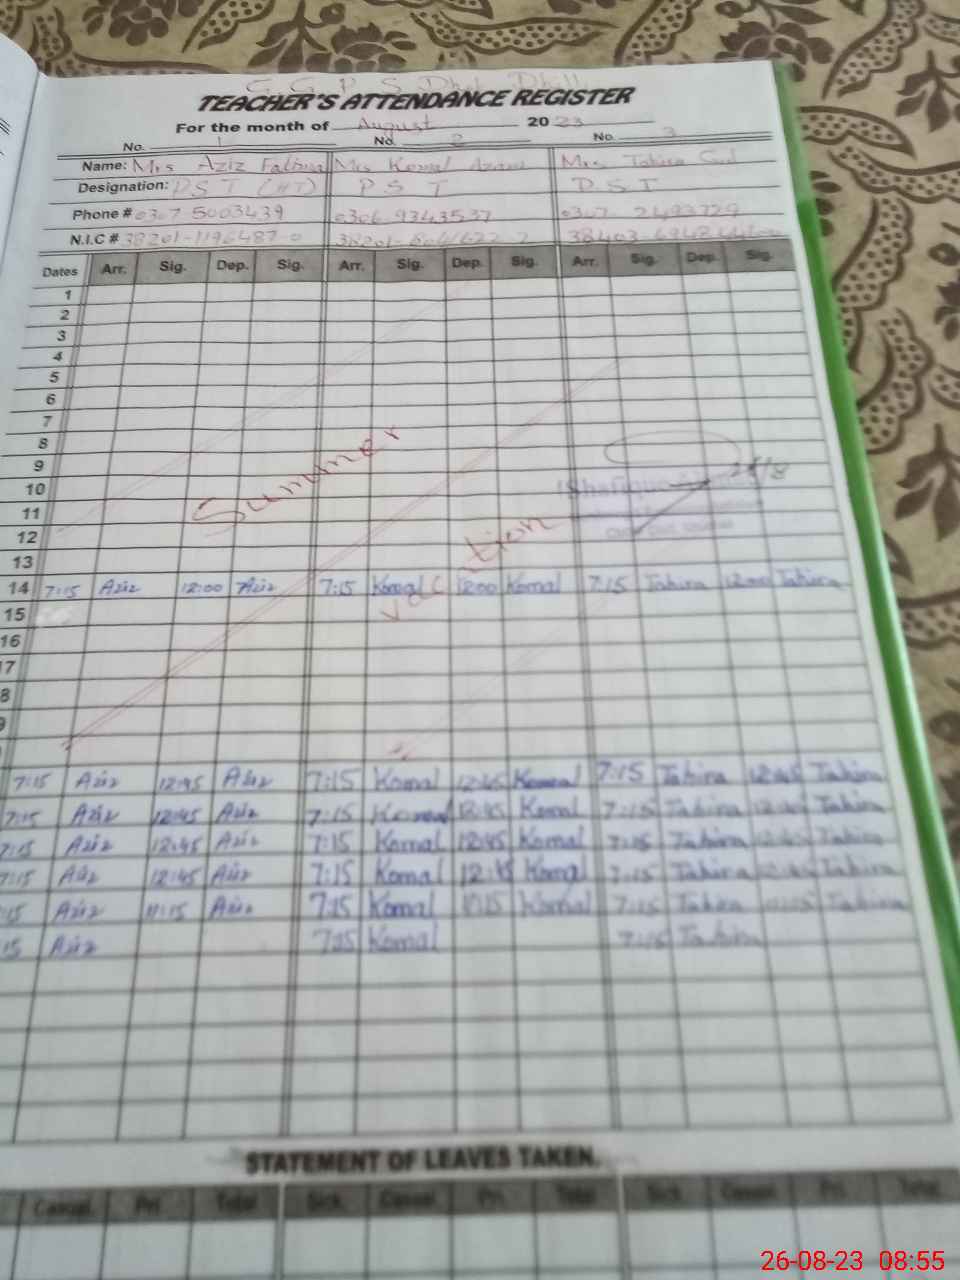 G. G. P. S Dhol Dhill
TEACHER'S ATTENDANCE REGISTER
For the month of August 2023
No. 1 No. 2 No. 3
Name: Mrs Aziz Fatima Mrs Komal Azam Mrs Tahira Gul
Designation: P S T (HT) P S T P S T
Phone # 0307-5003439 0306-9343537 0307-2493729
N.I.C # 38201-1196487-0 38201- 38403-
Dates Arr. Sig. Dep. Sig. Arr. Sig. Dep. Sig. Arr. Sig. Dep. Sig.
1
2
3
4
5
6
7
8
9
10
11
12
13
Summer
vacation
14 7:15 Aziz 12:00 Aziz 7:15 Komal 12:00 Komal 7:15 Tahira 12:00 Tahira
15
16
17
8
9
7:15 Aziz 12:45 Aziz 7:15 Komal 12:45 Komal 7:15 Tahira 12:45 Tahira
7:15 Aziz 12:45 Aziz 7:15 Komal 12:45 Komal 7:15 Tahira 12:45 Tahira
7:15 Aziz 12:45 Aziz 7:15 Komal 12:45 Komal 7:15 Tahira 12:45 Tahira
7:15 Aziz 12:45 Aziz 7:15 Komal 12:45 Komal 7:15 Tahira 12:45 Tahira
:15 Aziz 11:15 Aziz 7:15 Komal 11:15 Komal 7:15 Tahira 11:15 Tahira
15 Aziz 7:15 Komal 7:15 Tahira
STATEMENT OF LEAVES TAKEN.
Casual. Pri. Total Sick. Casual. Pri. Total Sick. Casual. Pri. Total
26-08-23 08:55